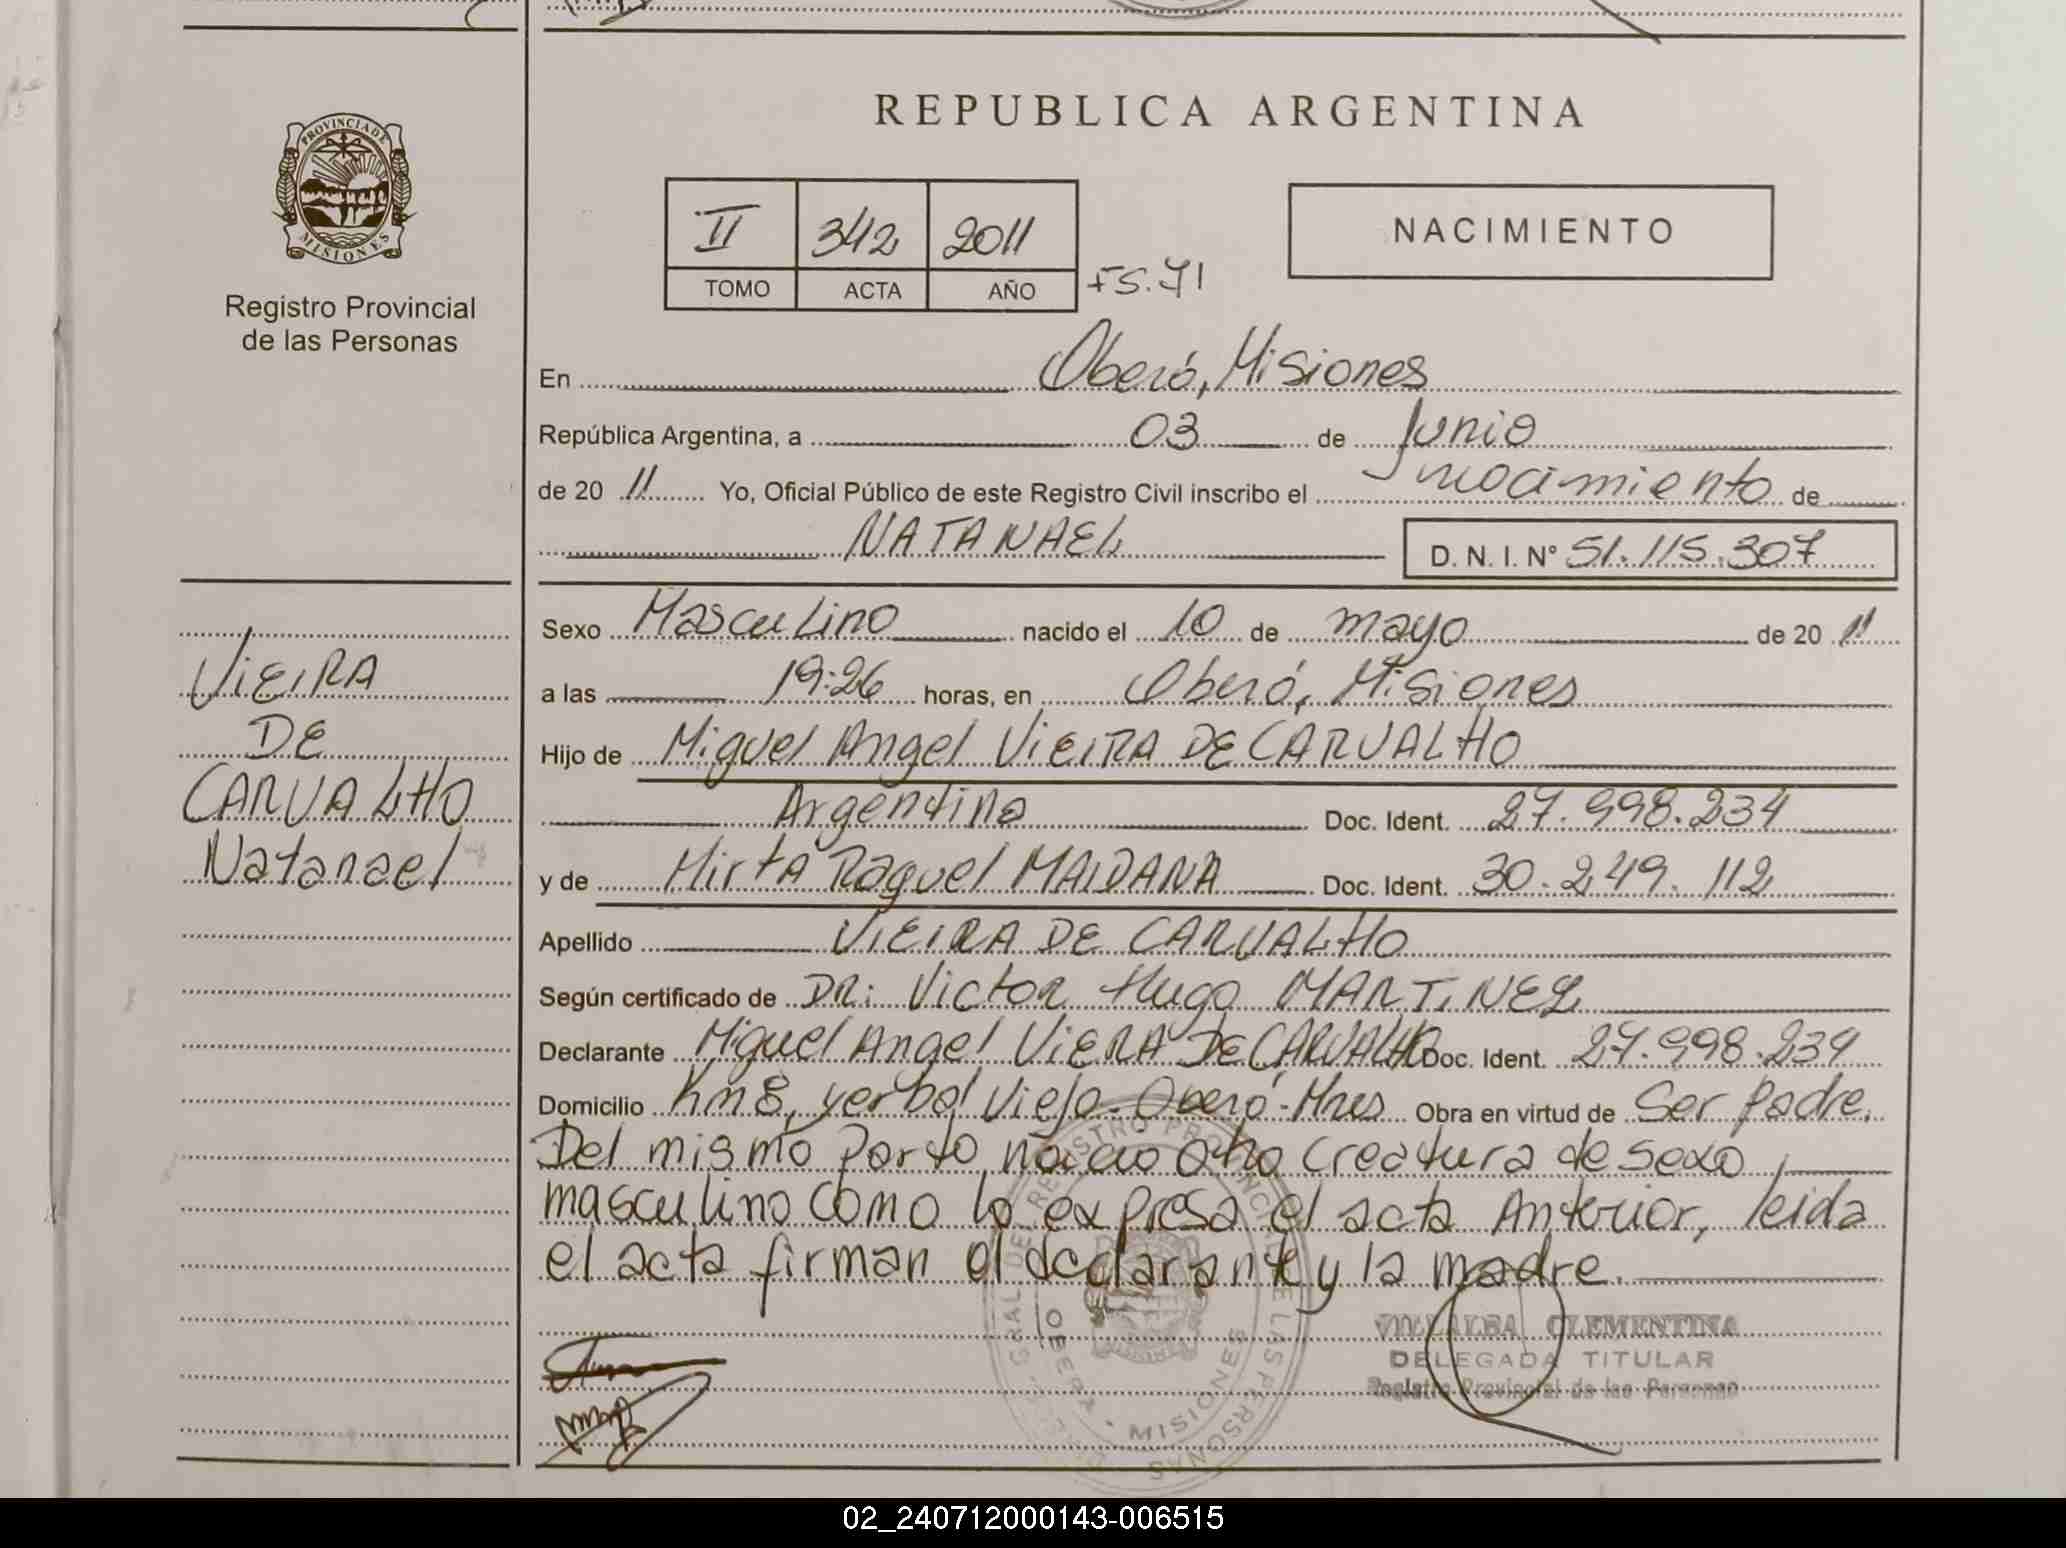 REPUBLICA ARGENTINA
PROVINCIA DE
MISIONES
Registro Provincial
de las Personas
II 342 2011
TOMO ACTA AÑO
FS. 71
NACIMIENTO
En Oberá, Misiones
República Argentina, a 03 de Junio
de 20 11 Yo, Oficial Público de este Registro Civil inscribo el nacimiento de
NATANAEL D. N. I. Nº 51.115.307
VIEIRA
DE
CARVALHO
Natanael
Sexo Masculino nacido el 10 de mayo de 20 11
a las 19:26 horas, en Oberá, Misiones
Hijo de Miguel Angel VIEIRA DE CARVALHO
Argentina Doc. Ident. 27.998.234
y de Mirta Raquel MAIDANA Doc. Ident. 30.249.112
Apellido VIEIRA DE CARVALHO
Según certificado de DR: Victor Hugo MARTINEZ
Declarante Miguel Angel VIERA DE CARVALHO Doc. Ident. 27.998.234
Domicilio Km 8, yerbal Viejo-Oberá-Mnes Obra en virtud de Ser Padre.
Del mismo Parto nacio otra creatura de sexo
masculino como lo expresa el acta Anterior, leida
el acta firman el declarante y la madre.
VILLALBA CLEMENTINA
DELEGADA TITULAR
Registro Provincial de las Personas
OBERA - MISIONES
02_240712000143-006515